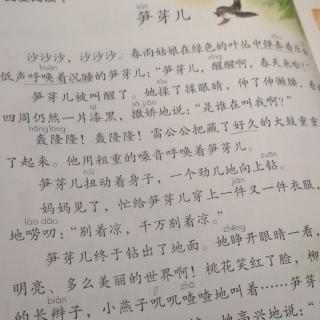 sǔn
笋芽儿
沙沙沙，沙沙沙。春雨姑娘在绿色的叶丛中弹奏着乐
huàn xǐng
低声呼唤着沉睡的笋芽儿：“笋芽儿，醒醒啊，春天来啦！”
笋芽儿被叫醒了。她揉了揉眼睛，伸了伸懒腰，看
qī sā jiāo
四周仍然一片漆黑，撒娇地说：“是谁在叫我啊？”
hōng lōng
轰隆隆！轰隆隆！雷公公把藏了好久的大鼓重重
了起来。他用粗重的嗓音呼唤着笋芽儿。
niǔ zuān
笋芽儿扭动着身子，一个劲儿地向上钻。
jiàn
妈妈见了，忙给笋芽儿穿上一件又一件衣服，
láo dāo
地唠叨：“别着凉，千万别着凉。”
zhēng
笋芽儿终于钻出了地面。她睁开眼睛一看，
明亮、多么美丽的世界啊！桃花笑红了脸，柳
biàn
的长辫子，小燕子叽叽喳喳地叫着……笋芽
地高兴地说：“